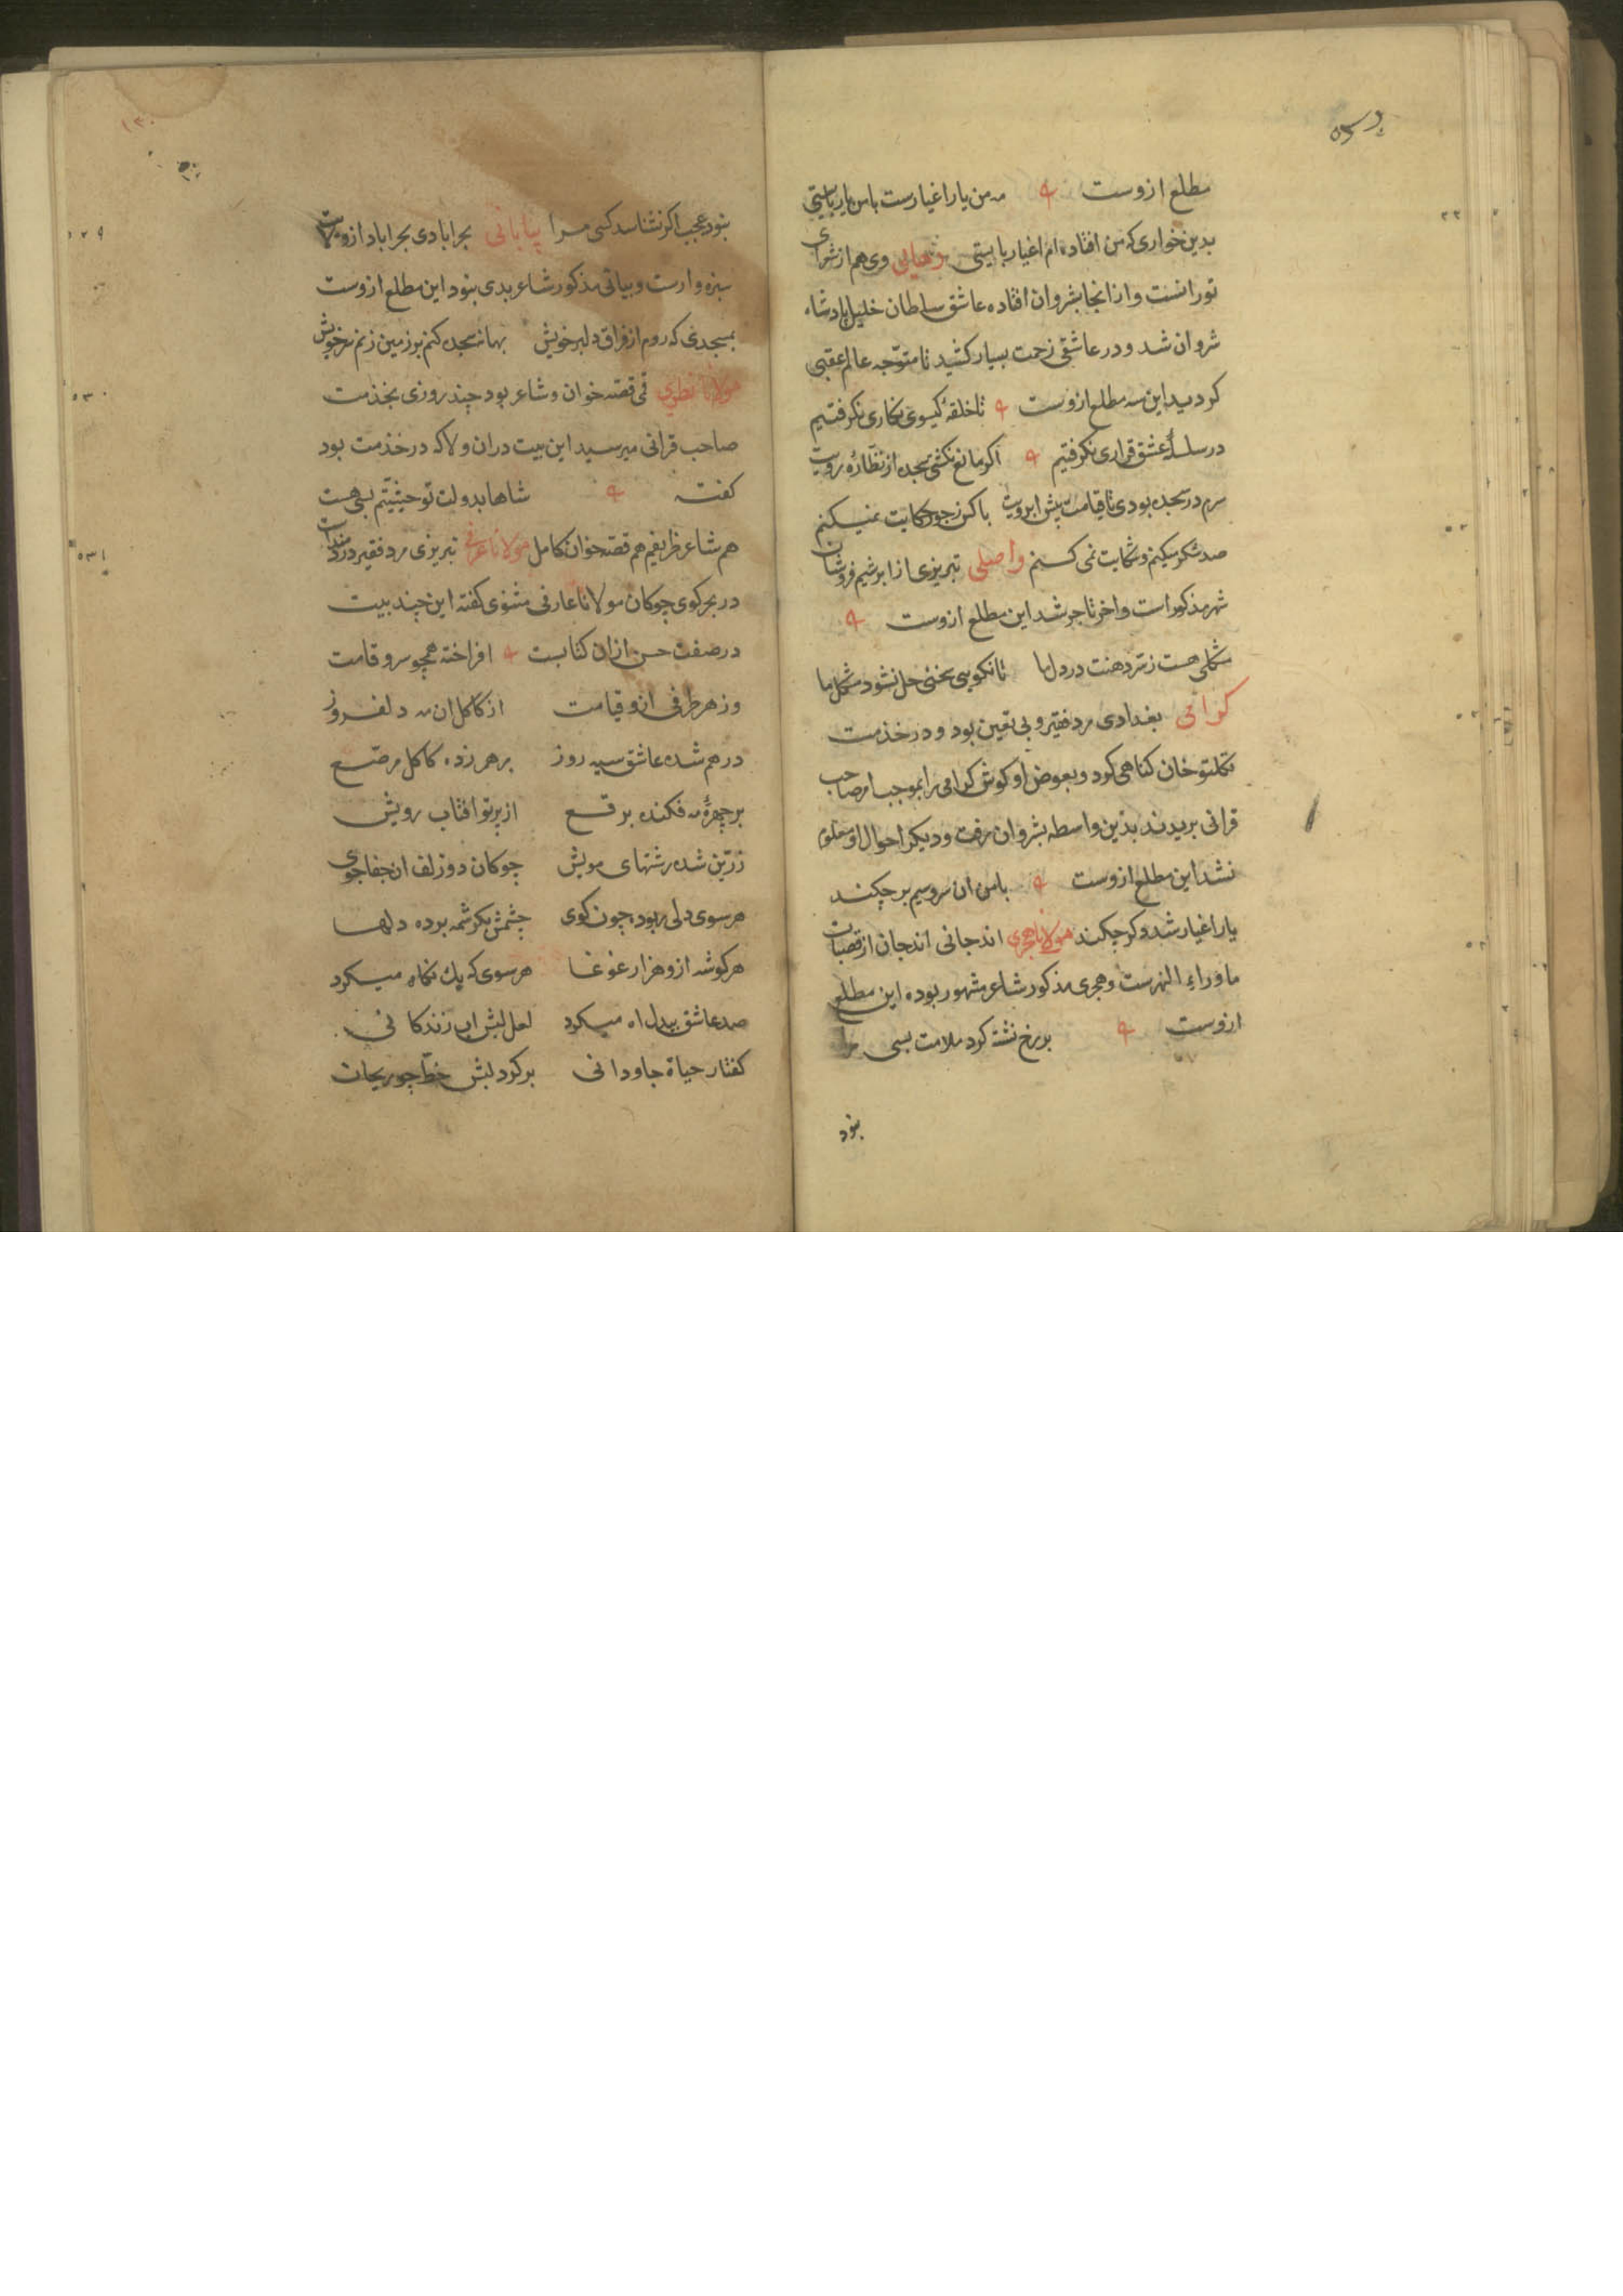 مطلع ازوست نه من یار اغیارست با من یار بایستی
بدین خواری که من افتاده ام اغیار بایستی وی هم از شعرای
تورانست و از انجا بشروان افتاده عاشق سلطان خلیل پادشاه
شروان شد و در عاشقی زحمت بسیار کشید تا متوجه عالم عقبی
کردید این سه مطلع ازوست تا حلقه کیسوی نکاری نکرفتیم
در سلسلهٔ عشق قراری نکرفتیم اکر مانع نکشتی سجده از نظارهٔ رویت
سرم در سجده بودی تا قیامت پیش ابرویت با کس ز جور حکایت نمیکنم
صد شکر میکنم و شکایت نمی کنم واصلی تبریزی از ابرشیم فروشان
شهر مذکور است و اخر تاجر شد این مطلع ازوست
مشکلی هست ز سر دهنت در دل ما تا نکویی سخنی حل نشود مشکل ما
کرامی بغدادی مرد فقیر و بی تعین بود و در خدمت
تکلتو خان کناهی کرد و بعوض او کوش کرامی را بموجب امر صاحب
قرانی بریدند بدین واسطه بشروان رفت و دیکر احوال او معلوم
نشد این مطلع ازوست با من ان سرو سیم بر چکند
یار اغیار شد دکر چکند مولانا هجری اندجانی اندجان از قصبات
ماوراء النهرست و هجری مذکور شاعر مشهور بوده این مطلع
ازوست بر رخ نشته کرد ملامت بسی مرا
بنود
۱۳۰
بنود عجب اکر نشناسد کسی مرا بیانی بحرابادی بحراباد از ولایت
سبزه وارست و بیانی مذکور شاعر بدی بنود این مطلع ازوست
بمسجدی که روم از فراق دلبر خویش بهانه سجده کنم بر زمین زنم سر خویش
مولانا نطقی قصه خوان و شاعر بود چند روزی بخدمت
صاحب قرانی میرسید این بیت دران ولا که در خدمت بود
کفته شاها بدولت تو حیثیتم بسی هست
هم شاعر ظریفم هم قصه خوان کامل مولانا عرفی تبریزی مرد فقیر دردمنداست
در بحر کوی چوکان مولانا عارفی مثنوی کفته این چند بیت
در صفت حسن ازان کتابست افراخته همچو سرو قامت
وز هر طرفی ازو قیامت از کاکل ان مه دلفروز
در هم شده عاشق سیه روز بر هم زده کاکل مرصع
بر چهرهٔ مه فکنده برقع از پرتو افتاب رویش
زرین شده رشتهای مویش چوکان دو زلف ان جفاجوی
هر سوی دلی ربوده چون کوی چشمش بکرشمه برده دلها
هر کوشه ازو هزار غوغا هر سوی که یک نکاه میکرد
صد عاشق بیدل اه میکرد لعل لبش اب زندکانی
کفتار حیاة جاودانی بر کرد لبش خط چو ریحان